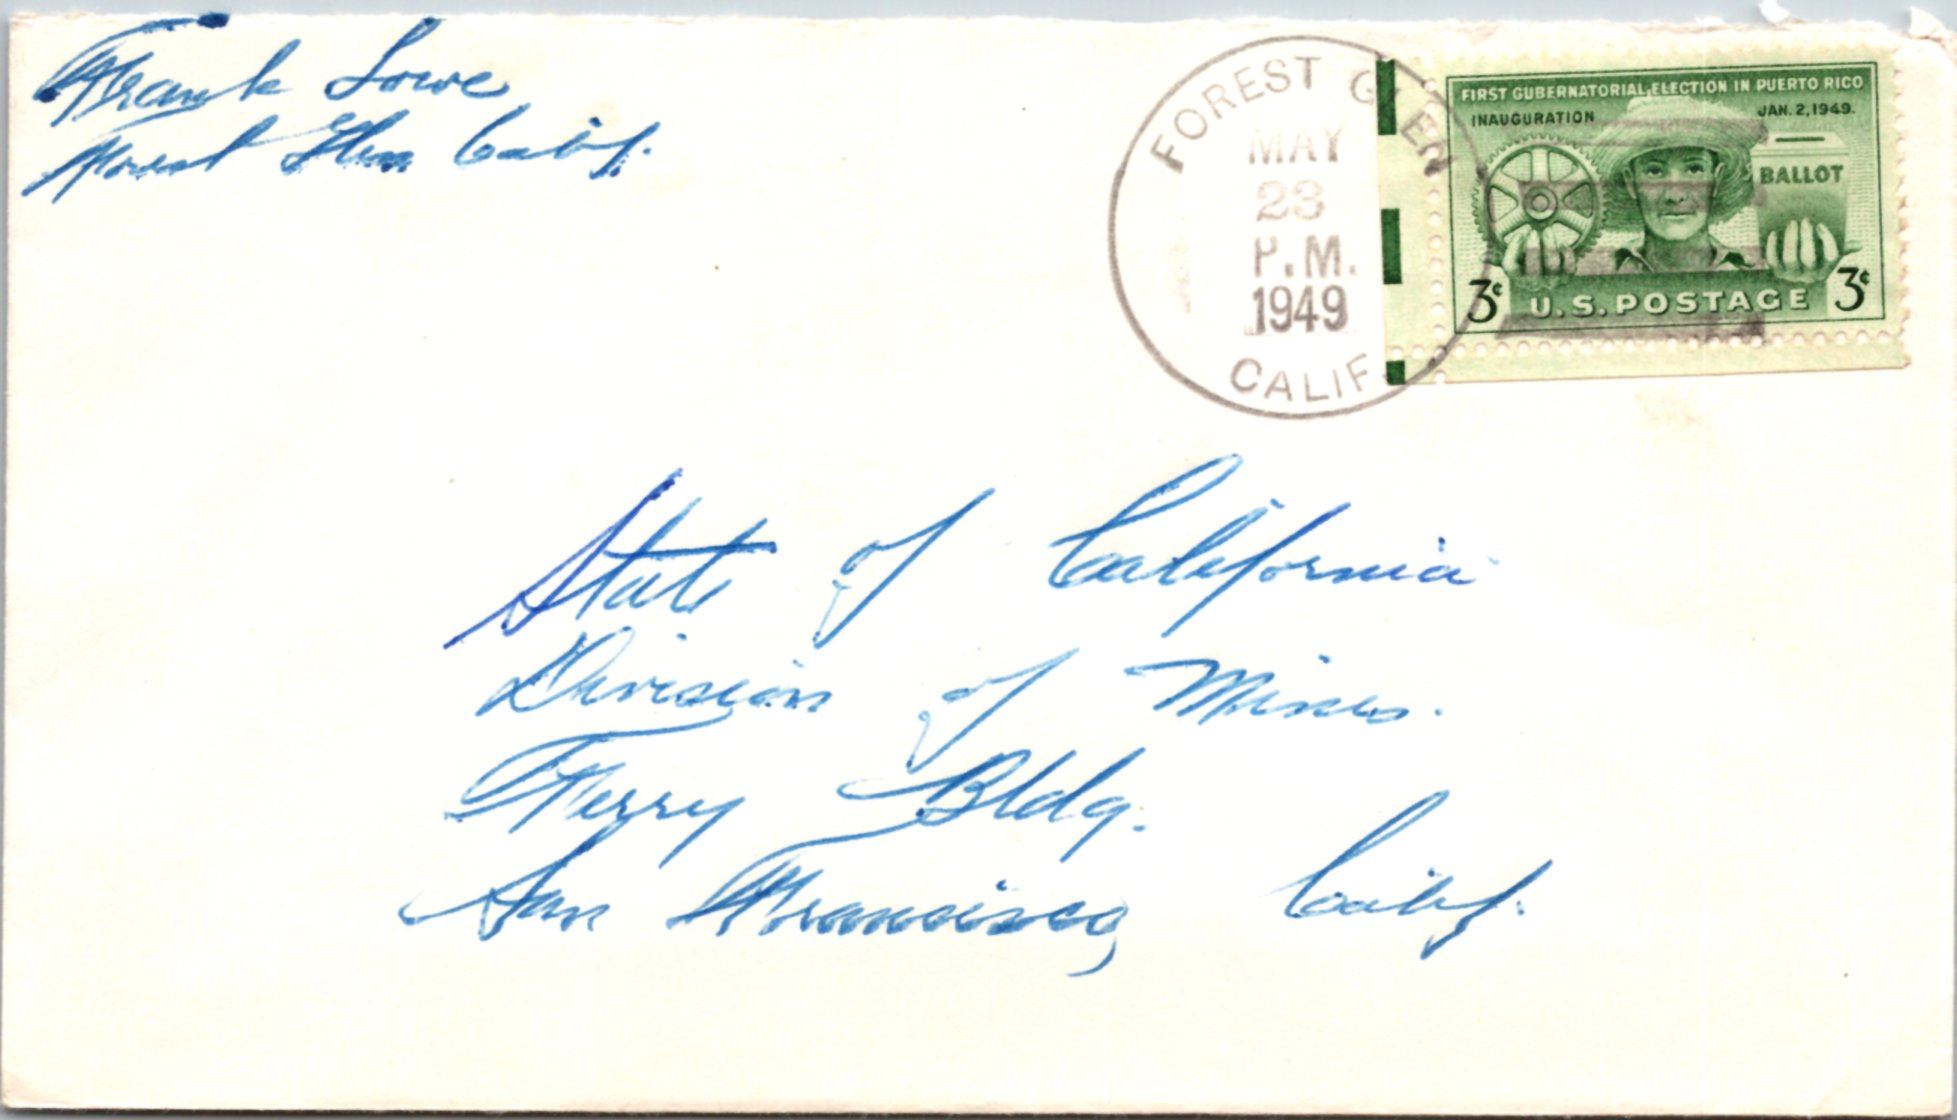 Frank Lowe
Forest Glen Calif.
FOREST GLEN
MAY
23
P.M.
1949
CALIF.
FIRST GUBERNATORIAL ELECTION IN PUERTO RICO
INAUGURATION JAN. 2, 1949.
BALLOT
3¢ U.S. POSTAGE 3¢
State of California
Division of Mines.
Ferry Bldg.
San Francisco, Calif.